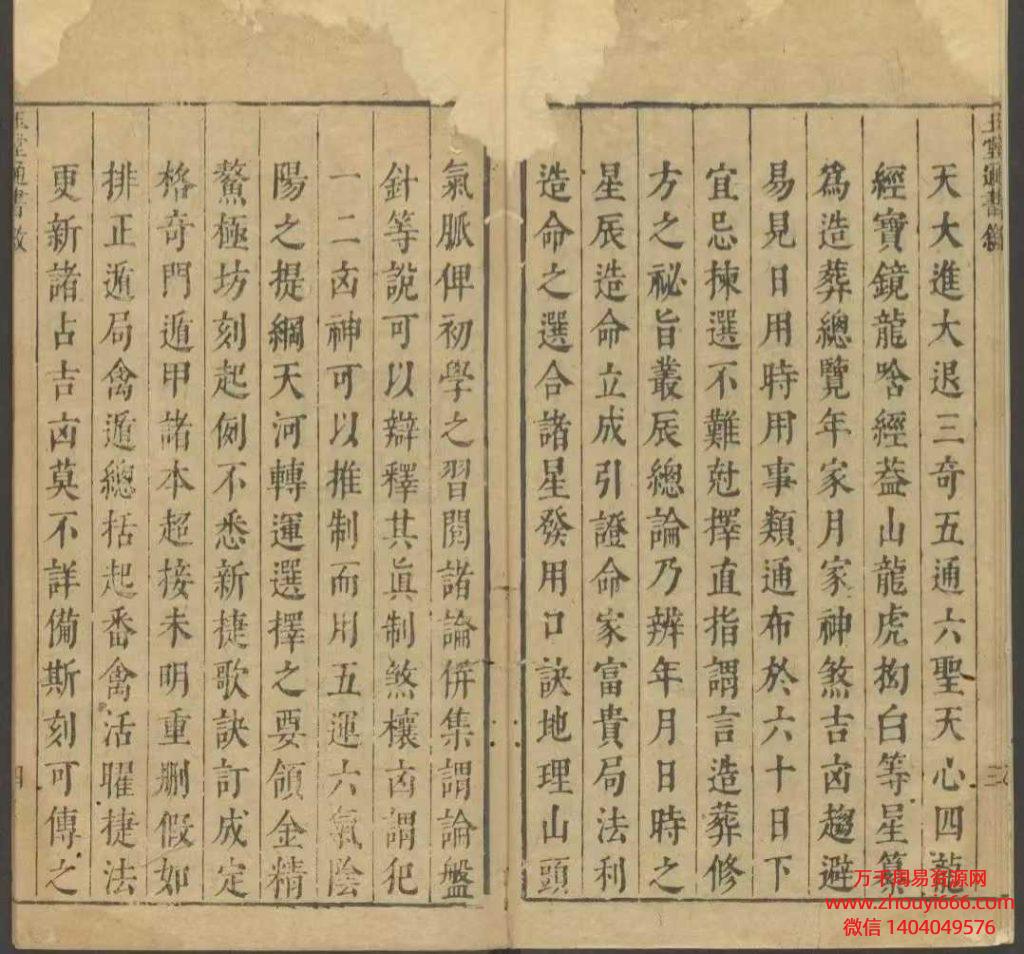 天大進大退三奇五通六聖天心四龍
經寶鏡龍唅經葢山龍虎抝白等星纂
爲造葬總覽年家月家神煞吉凶趨避
易見日用時用事類通布於六十日下
宜忌揀選不難尅擇直指謂言造葬修
方之祕旨叢辰總論乃辨年月日時之
星辰造命立成引證命家富貴局法利
造命之選合諸星發用口訣地理山頭
氣脈俾初學之習閱諸論併集謂論盤
針等說可以辯釋其眞制煞穰凶謂犯
一二凶神可以推制而用五運六氣陰
陽之提綱天河轉運選擇之要領金精
鰲極坊刻起例不悉新捷歌訣訂成定
格奇門遁甲諸本超接未明重刪假如
排正遁局禽遁總括起畨禽活曜捷法
更新諸占吉凶莫不詳備斯刻可傳之
堂通書
四
万千周易资源网
www.zhouyi666.com
微信 1404049576